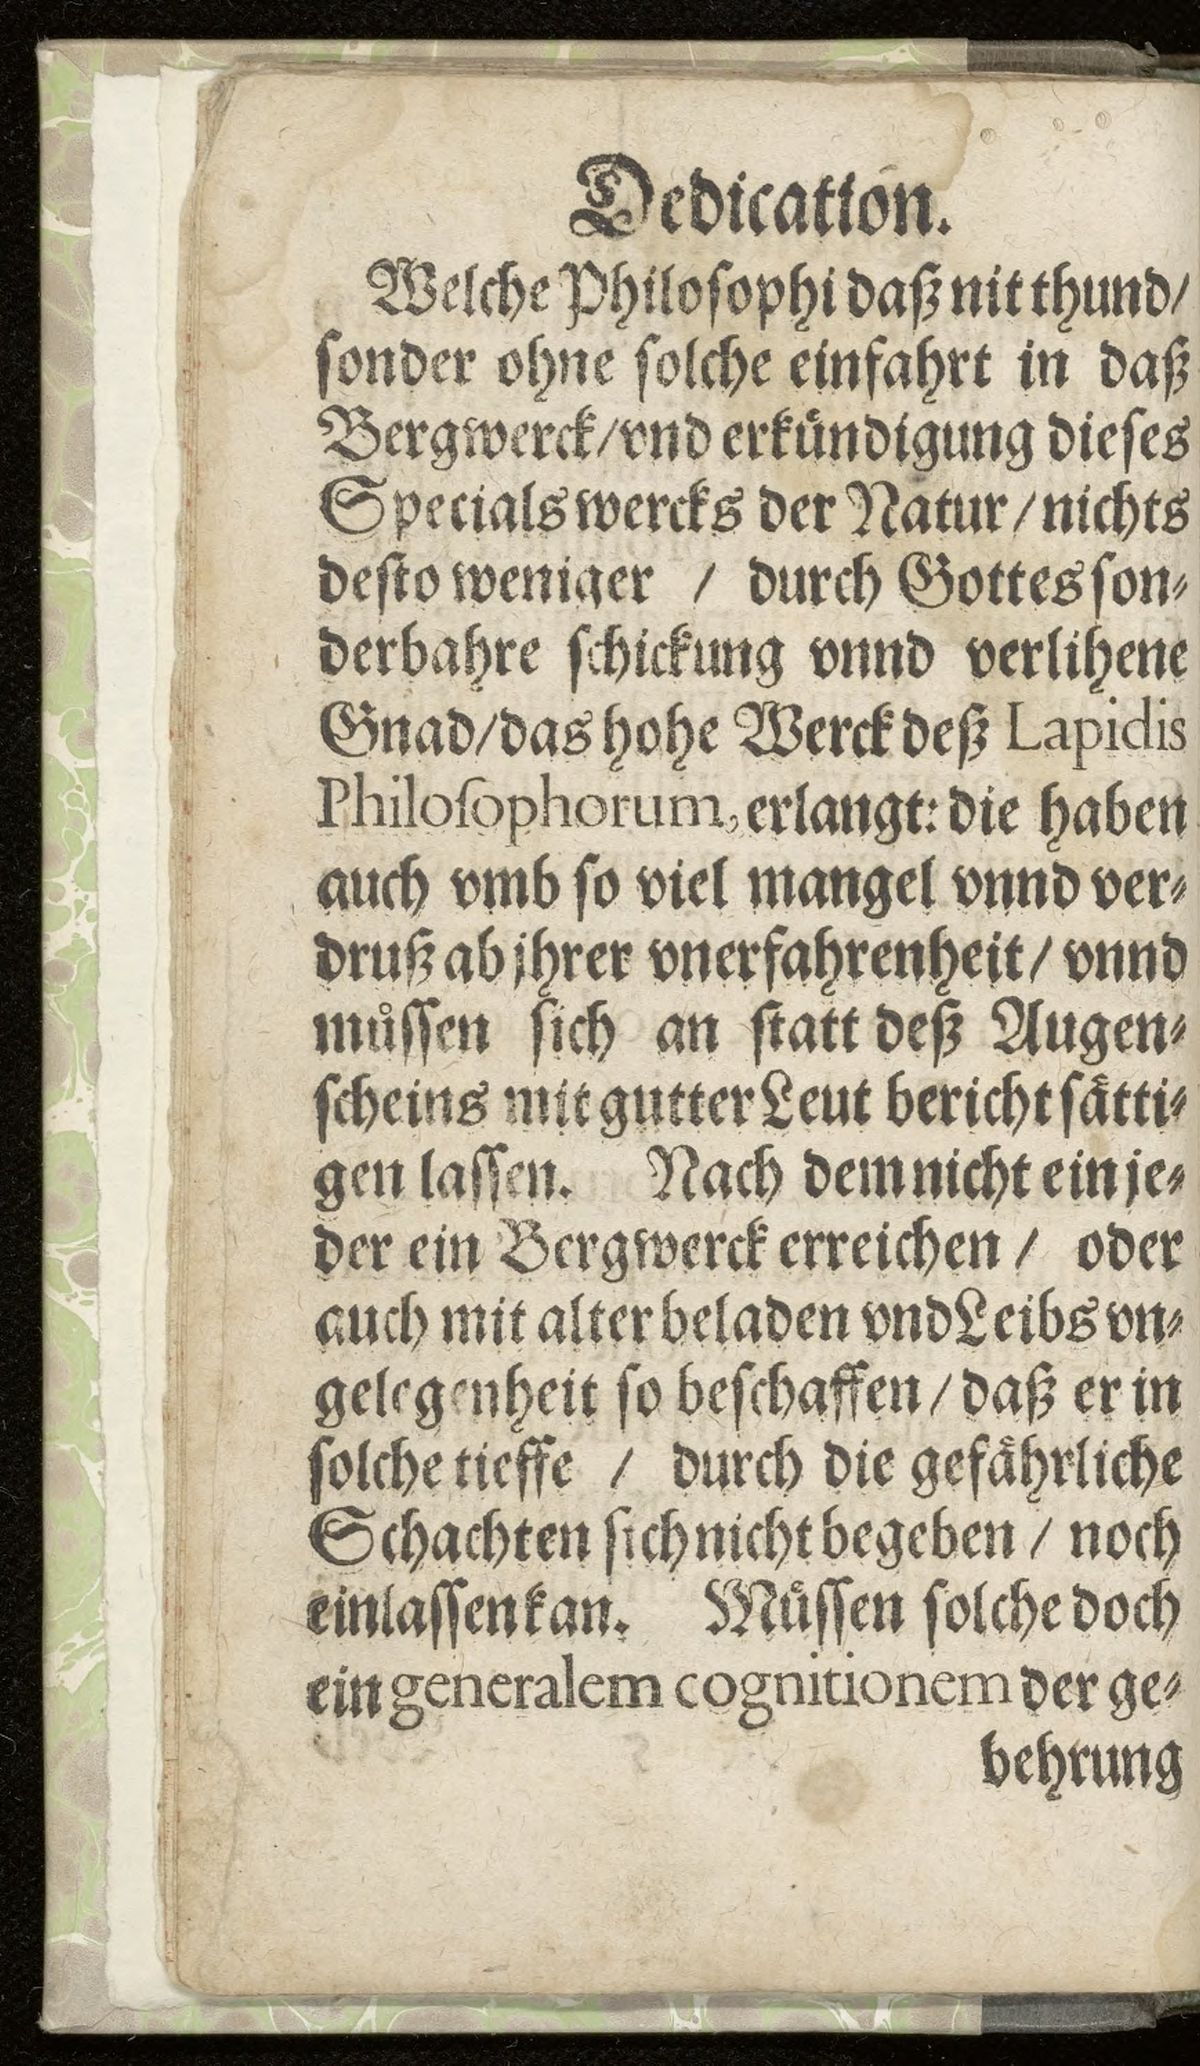 Dedication.
Welche Philosophi daß nit thund/
sonder ohne solche einfahrt in daß
Bergwerck/vnd erkündigung dieses
Specialswercks der Natur/nichts
desto weniger / durch Gottes son⸗
derbahre schickung vnnd verlihene
Gnad/das hohe Werck deß Lapidis
Philosophorum, erlangt: die haben
auch vmb so viel mangel vnnd ver⸗
druß ab jhrer vnerfahrenheit/ vnnd
müssen sich an statt deß Augen⸗
scheins mit gutter Leut bericht sätti⸗
gen lassen. Nach dem nicht ein je⸗
der ein Bergwerck erreichen / oder
auch mit alter beladen vnd Leibs vn⸗
gelegenheit so beschaffen/daß er in
solche tieffe / durch die gefährliche
Schachten sich nicht begeben / noch
einlassen kan. Müssen solche doch
ein generalem cognitionem der ge⸗
behrung